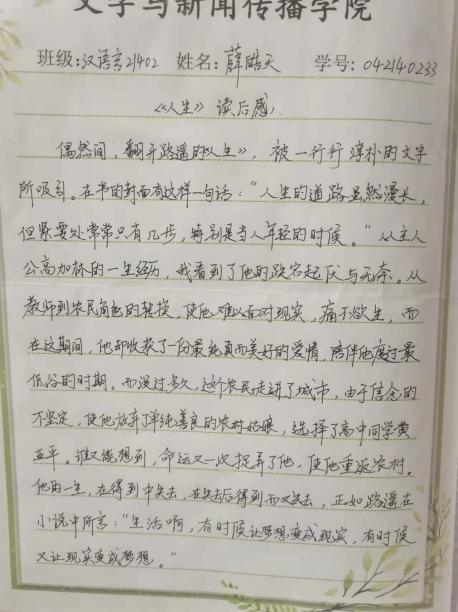 文学与新闻传播学院
班级:汉语言21402 姓名:薛皓天 学号:042140233
《人生》读后感
偶然间,翻开路遥的《人生》,被一行行淳朴的文字
所吸引。在书的封面有这样一句话:“人生的道路虽然漫长,
但紧要处常常只有几步,特别是当人年轻的时候。”从主人
公高加林的一生经历,我看到了他的跌宕起伏与无奈。从
教师到农民角色的转换,使他难以面对现实,痛不欲生,而
在这期间,他却收获了一份最纯真而美好的爱情,陪伴他度过最
低谷的时期。而没过多久,这个农民走进了城市,由于信念的
不坚定,使他放弃了单纯善良的农村姑娘,选择了高中同学黄
亚平。谁又能想到,命运又一次捉弄了他,使他重返农村。
他的一生,在得到中失去,在失去后得到而又失去,正如路遥在
小说中所言:“生活啊,有时候让梦想变成现实,有时候
又让现实变成梦想。”